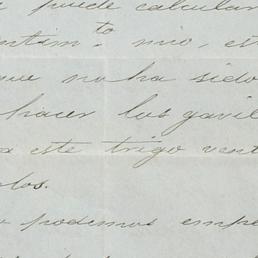 puede calcular
to mio, es
que no ha sido
hacer los gavil
a este trigo vent
los.
podemos empe